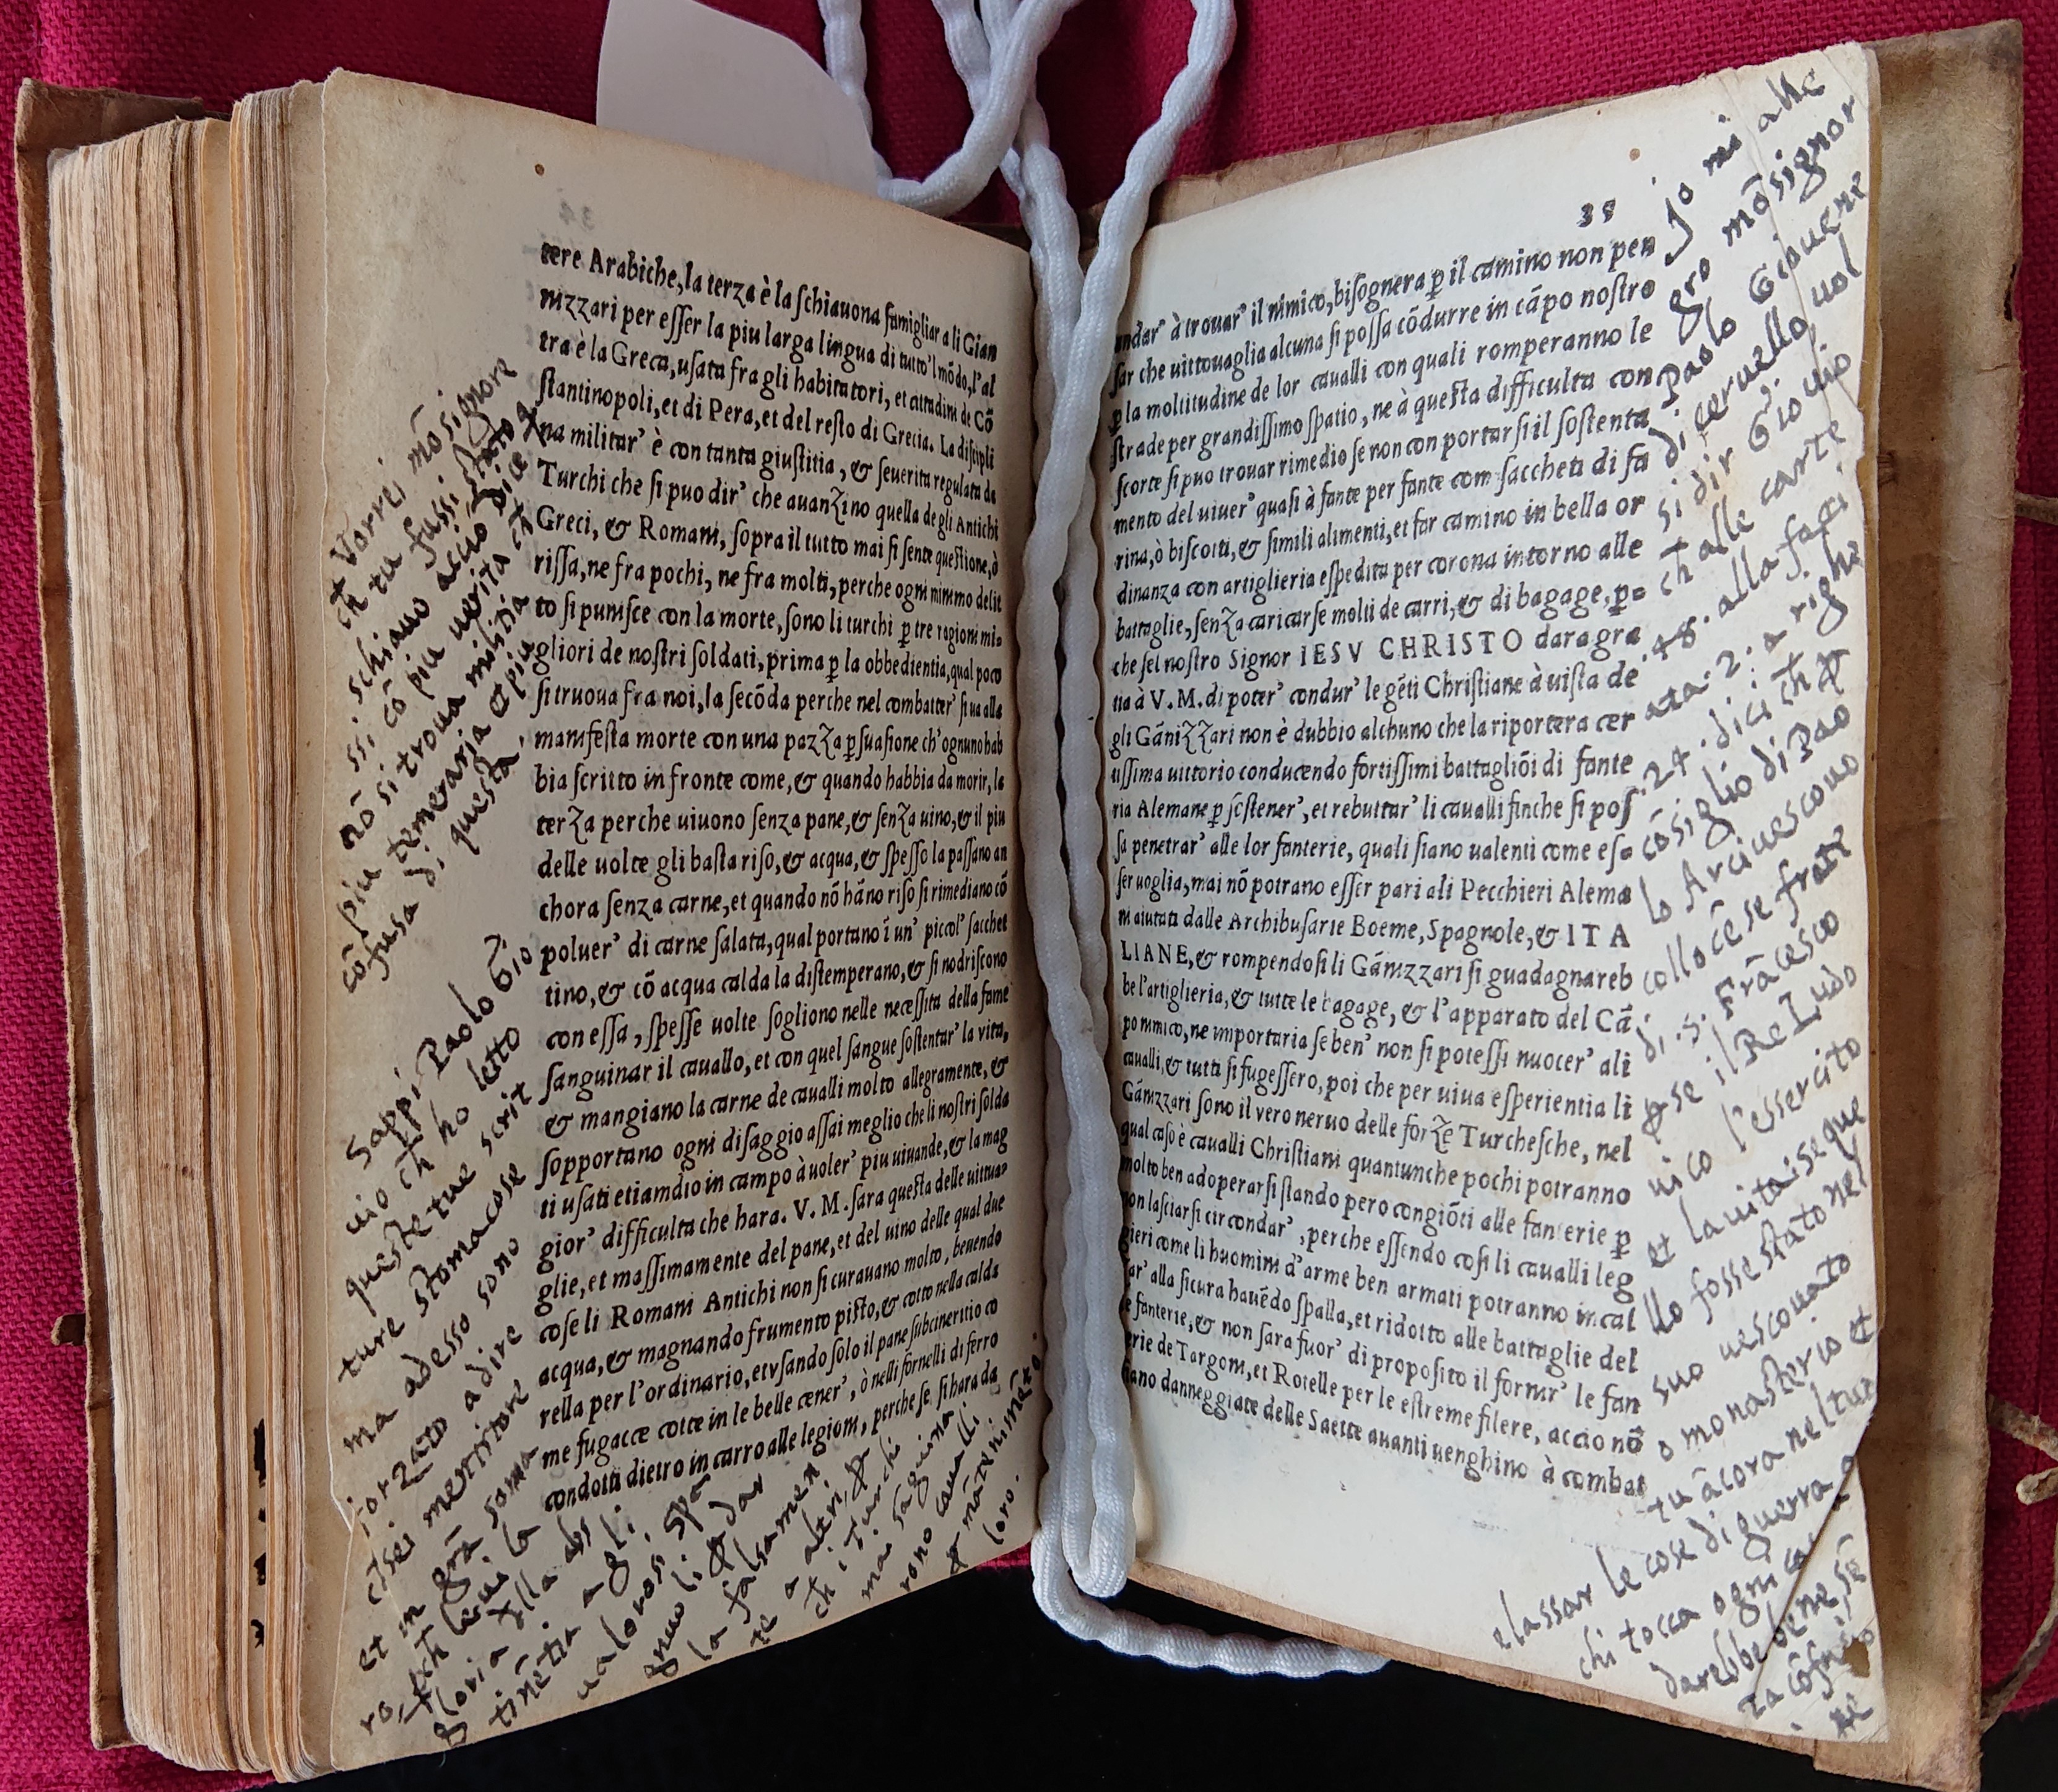 tere Arabiche, la terza è la schiauona famigliar a li Gian
nizzari per esser la piu larga lingua di tutto'l mōdo, l'al
tra è la Greca, usata fra gli habitatori, et cittadini de Cō
stantinopoli, et di Pera, et del resto di Grecia. La discipli
na militar' è con tanta giustitia, & seuerita regulata da
Turchi che si puo dir' che auanzino quella degli Antichi
Greci, & Romani, sopra il tutto mai si sente questione, ò
rissa, ne fra pochi, ne fra molti, perche ogni minimo delit
to si punisce con la morte, sono li turchi ꝑ tre ragioni mi=
gliori de nostri soldati, prima ꝑ la obbedientia, qual poco
si truoua fra noi, la secōda perche nel combatter' si ua alla
manifesta morte con una pazza ꝑsuasione ch'ognuno hab
bia scritto in fronte come, & quando habbia da morir, la
terza perche uiuono senza pane, & senza uino, & il piu
delle uolte gli basta riso, & acqua, & spesso la passano an
chora senza carne, et quando nō hāno riso si rimediano cō
poluer' di carne salata, qual portano ī un' piccol' sacchet
tino, & cō acqua calda la distemperano, & si nodriscono
con essa, spesse uolte sogliono nelle necessita della fame
sanguinar il cauallo, et con quel sangue sostentar' la vita,
& mangiano la carne de caualli molto allegramente, &
sopportano ogni disaggio assai meglio che li nostri solda
ti usati etiamdio in campo à uoler' piu uiuande, & la mag
gior' difficulta che hara. V. M. sara questa delle uittua=
glie, et massimamente del pane, et del uino delle qual due
cose li Romani Antichi non si curauano molto, beuendo
acqua, & magnando frumento pisto, & cotto nella calda
rella per l'ordinario, et vsando solo il pane subcineritio co
me fugacce cotte in le belle cener', ò nelli fornelli di ferro
condotti dietro in carro alle legioni, perche se, si hara da
Vorrei mōsignore
ch tu fussi stato
schiauo accio dice
ssi cō piu uerita ch
nō si troua militia
piu temeraria et piu
cōfusa di questa
Sappi Paolo Gio
uio ch ho letto
queste tue scrit
ture stomacose
ma adesso sono
forzato a dire
ch sei mentitore
et in grā soma
ro, ch leui la
gloria dlla abs
tinētia a gli
ualorosi Spa
gnuoli ꝑ dar
la falsamen
te a altri, ꝑ
ch i Turchi
mai saguina
rono caualli
ꝑ mātenimēto
loro.
38
andar' à trouar' il nimico, bisognera ꝑ il camino non pen
sar che uittouaglia alcuna si possa cōdurre in cāpo nostro
ꝑ la moltitudine de lor caualli con quali romperanno le
strade per grandissimo spatio, ne à questa difficulta con
scorte si puo trouar rimedio se non con portarsi il sostenta
mento del uiuer' quasi à fante per fante com saccheti di fa
rina, ò biscotti, & simili alimenti, et far camino in bella or
dinanza con artiglieria espedita per corona intorno alle
battaglie, senza caricarse molti de carri, & di bagage, ꝑ=
che sel nostro Signor IESV CHRISTO dara gra
tia à V. M. di poter' condur' le gēti Christiane à uista de
gli Gānizzari non è dubbio alchuno che la riportera cer
tissima uittorio conducendo fortissimi battaglioī di fante
ria Alemane ꝑ sostener', et rebuttar' li caualli finche si pos
sa penetrar' alle lor fanterie, quali siano ualenti come es=
ser uoglia, mai nō potrano esser pari ali Pecchieri Alema
ni aiutati dalle Archibusarie Boeme, Spagnole, & ITA
LIANE, & rompendosi li Gānizzari si guadagnareb
be l'artiglieria, & tutte le bagage, & l'apparato del Cā
po nimico, ne importaria se ben' non si potessi nuocer' ali
caualli, & tutti si fugessero, poi che per uiua esperientia li
Gānizzari sono il vero neruo delle forze Turchesche, nel
qual caso è caualli Christiani quantunche pochi potranno
molto ben adoperarsi stando pero congiōti alle fanterie ꝑ
non lasciarsi circondar', perche essendo cosi li caualli leg
gieri come li huomini d'arme ben armati potranno incal
zar' alla sicura hauēdo spalla, et ridotto alle battaglie del
le fanterie, & non sara fuor' di proposito il fornir' le fan
terie de Targoni, et Rotelle per le estreme filere, accio nō
siano danneggiate delle Saette auanti uenghino à combat
Jo mi alle
gro mōsignor
Paolo Giouene
di ceruello, uol
si dir Giouio
ch alle carte
48. alla faci
ata. 2. a righe
24. dici ch ꝑ
cōsiglio di Pao
lo Arciuescouo
collocēse frate
di .s. Frācesco
ꝑse il Re Ludo
uico l'essercito
et la uita; se que
llo fosse stato nel
suo uescouato
o monasterio et
tu ācora nel tuo
lassar le cose di guerra a
chi tocca ogni cosa
darebbe bene, sē
za cōfusio
ne